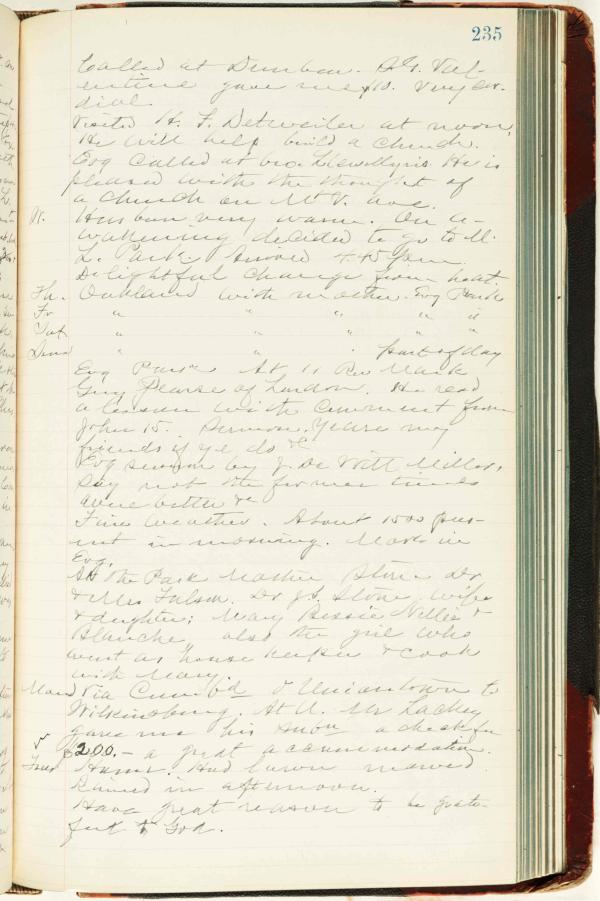 235
Called at Dunbar. A.G. Val-
entine gave me $10. Very cor-
dial.
Visited H. F. Detweiler at noon,
He will help build a church.
Evg called at Geo. Llewellyn's. He is
pleased with the thought of
a church on Mt V. ave.
W. Has been very warm. On a-
wakening decided to go to M.
L. Park. Arrived 4.45 p.m.
Delightful change from heat.
Th. Oakland with mother. Evg Park
Fr " " " " "
Sat " " " " "
Sund " " " part of day
Evg Park At 11 Rev Mark
Guy Pearse of London. He read
a lesson with comment from
John 15. Sermon. Ye are my
friends if ye do &c
Evg sermon by J. De Witt Miller,
Say not the former times
were better &c
Fine weather. About 1500 pres-
ent in morning. More in
Evg.
At the Park Mother Stone Dr
& Mrs Fulson. Dr J.S. Stone, wife
& daughter; Mary Bessie Nellie &
Blanche also the girl who
went as house keeper & cook
with Mary.
Mond Via Cumbd & Uniontown to
Wilkinsburg. At U. Mr Lackey
gave me his a check for
$200. – a great accommodation.
Tues Home. Had lawn mowed.
Rained in afternoon.
Have great reason to be grate-
ful to God.